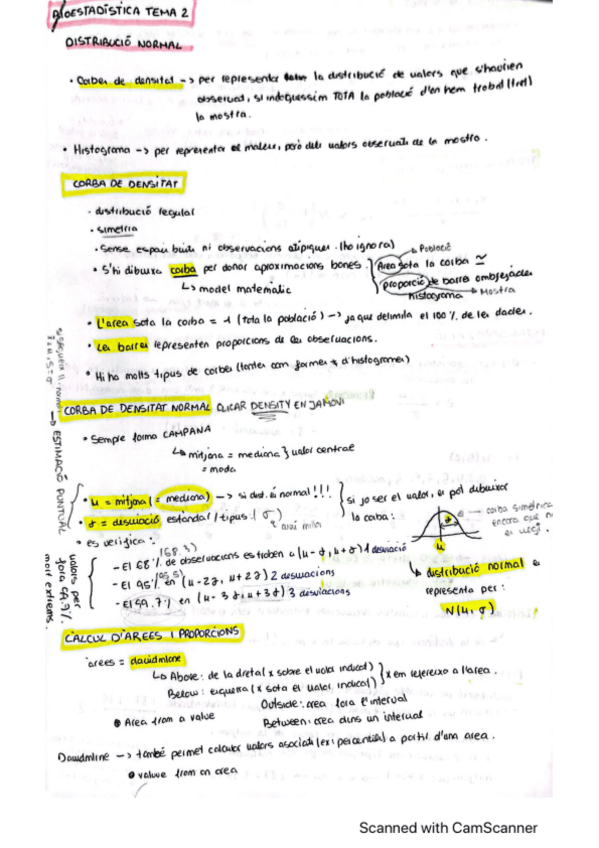 BIOESTADÍSTICA TEMA 2
DISTRIBUCIÓ NORMAL
• Corbes de densitat -> per representar la distribució de valors que s'haurien
observat, si indaguéssim TOTA la població d'on hem trobat (tret)
la mostra.
• Histograma -> per representar el mateix, però dels valors observats de la mostra.
CORBA DE DENSITAT
- distribució regular
- simetria
• Sense espais buits ni observacions atípiques (ho ignora)
• S'hi dibuixa corba per donar aproximacions bones.
↳ model matemàtic
Àrea sota la corba ≃
proporció de barres ombrejades
histograma
Població
Mostra
• L'àrea sota la corba = 1 (tota la població) -> ja que delimita el 100% de les dades.
• Les barres representen proporcions de les observacions.
• Hi ha molts tipus de corbes (tantes com formes d'histogrames)
CORBA DE DENSITAT NORMAL CLICAR DENSITY EN JAMOVI
• Sempre forma CAMPANA
↳ mitjana = mediana } valor central
= moda
• μ = mitjana (= mediana) -> si dist. és normal!!!
• σ = desviació estàndar / tipus (σ)
si jo sé el valor, es pot dibuixar
la corba:
corba simètrica
encara que
μ
• es verifica:
(68.3)
- El 68% de observacions estroben a (μ-σ, μ+σ) 1 desviació
(95.5)
- El 95% en (μ-2σ, μ+2σ) 2 desviacions
- El 99.7% en (μ-3σ, μ+3σ) 3 desviacions
↳ distribució normal es
representa per:
N(μ, σ)
-> ESTIMACIÓ PUNTUAL
valors per
fora 99,7%
molt extrems.
CÀLCUL D'ÀREES I PROPORCIONS
àrees = davidmlane
↳ Above: de la dreta (x sobre el valor indicat)
Below: esquerra (x sota el valor indicat)
} x em refereixo a l'àrea.
Outside: àrea fora l'interval
• Area from a value
Between: àrea dins un interval
Davidmlane -> també permet calcular valors associats (ex: percentils) a partir d'una àrea.
• value from an area
Scanned with CamScanner